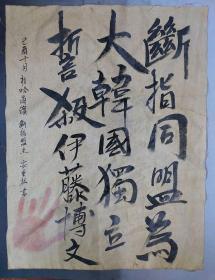 斷指同盟為
大韓國獨立
誓殺伊藤博文
己酉十月 於哈爾濱 斷指盟主 安重根 書